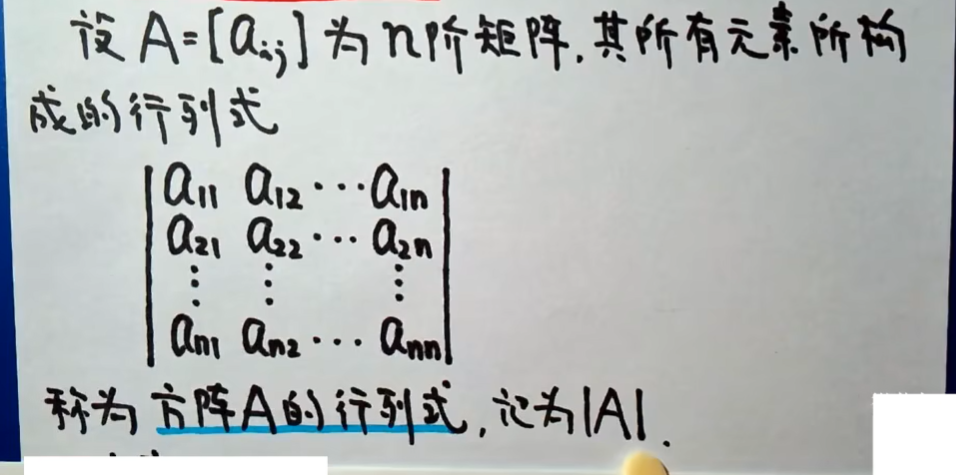 设 A=[aij] 为 n阶矩阵,其所有元素所构
成的行列式
|a11 a12 ··· a1n|
|a21 a22 ··· a2n|
⋮ ⋮ ⋮
|an1 an2 ··· ann|
称为方阵A的行列式,记为|A|.